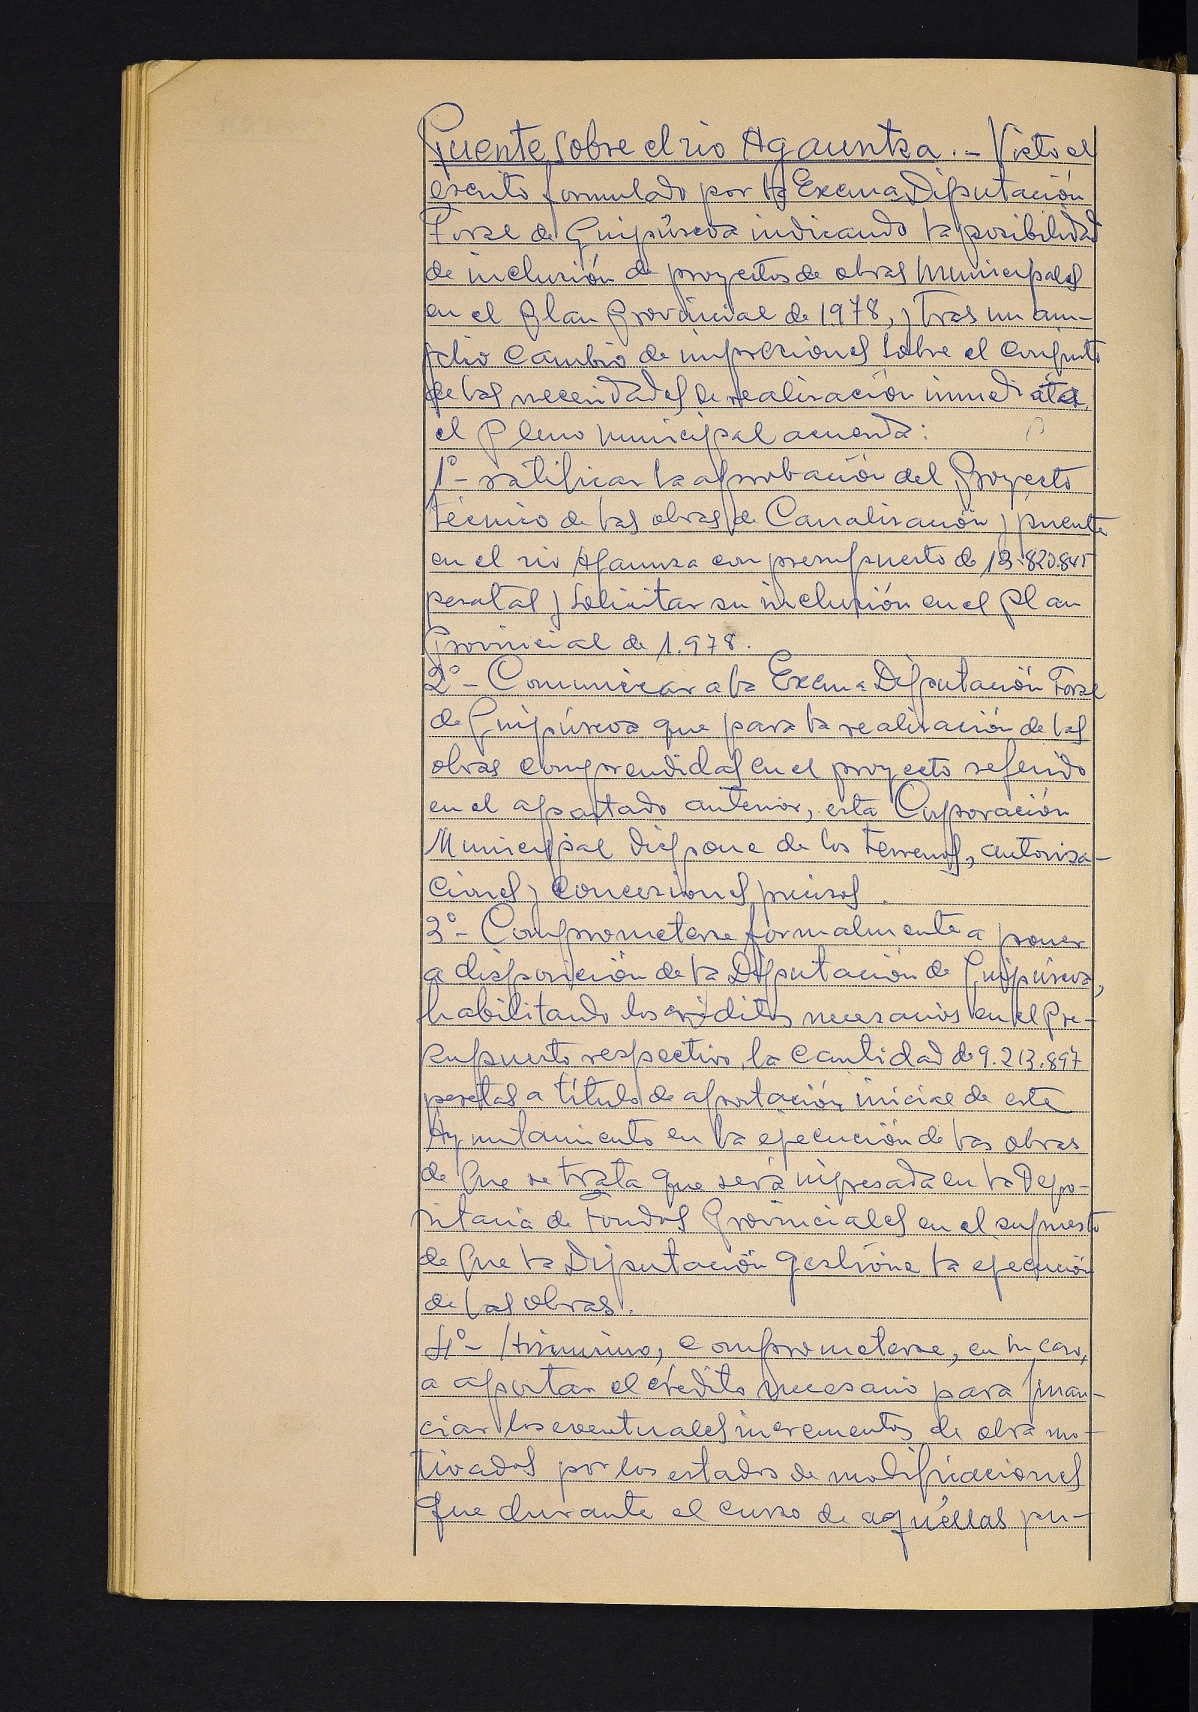 Puente sobre el rio Agauntza.- Visto el
escrito formulado por la Excma Diputación
Foral de Guipúscoa indicando la posibilidad
de inclusión de proyectos de obras municipales
en el plan Provincial de 1978, y tras un am-
plio cambio de impresiones sobre el conjunto
de las necesidades de realización inmediata,
el pleno municipal acuerda:
1º- ratificar la aprobación del Proyecto
técnico de las obras de Canalización y puente
en el rio Agaunza con presupuesto de 13.820.845
pesetas y solicitar su inclusión en el plan
Provincial de 1.978.
2º- Comunicar a la Excma Diputación Foral
de Guipúscoa que para la realización de las
obras comprendidas en el proyecto referido
en el apartado anterior, esta Corporación
Municipal dispone de los terrenos, autoriza-
ciones y concesiones precisos.
3º- Comprometerse formalmente a poner
a disposición de la Diputación de Guipúscoa,
habilitando los créditos necesarios en el Pre-
supuesto respectivo, la cantidad de 9.213.897
pesetas a título de aportación inicial de este
Ayuntamiento en la ejecución de las obras
de que se trata que será ingresada en la Depo-
sitaria de Fondos Provinciales en el supuesto
de que la Diputación gestione la ejecución
de las obras.
4º- Asimismo, comprometerse, en su caso,
a aportar el crédito necesario para finan-
ciar los eventuales incrementos de obra mo-
tivados por los estados de modificaciones
que durante el curso de aquéllas pu-